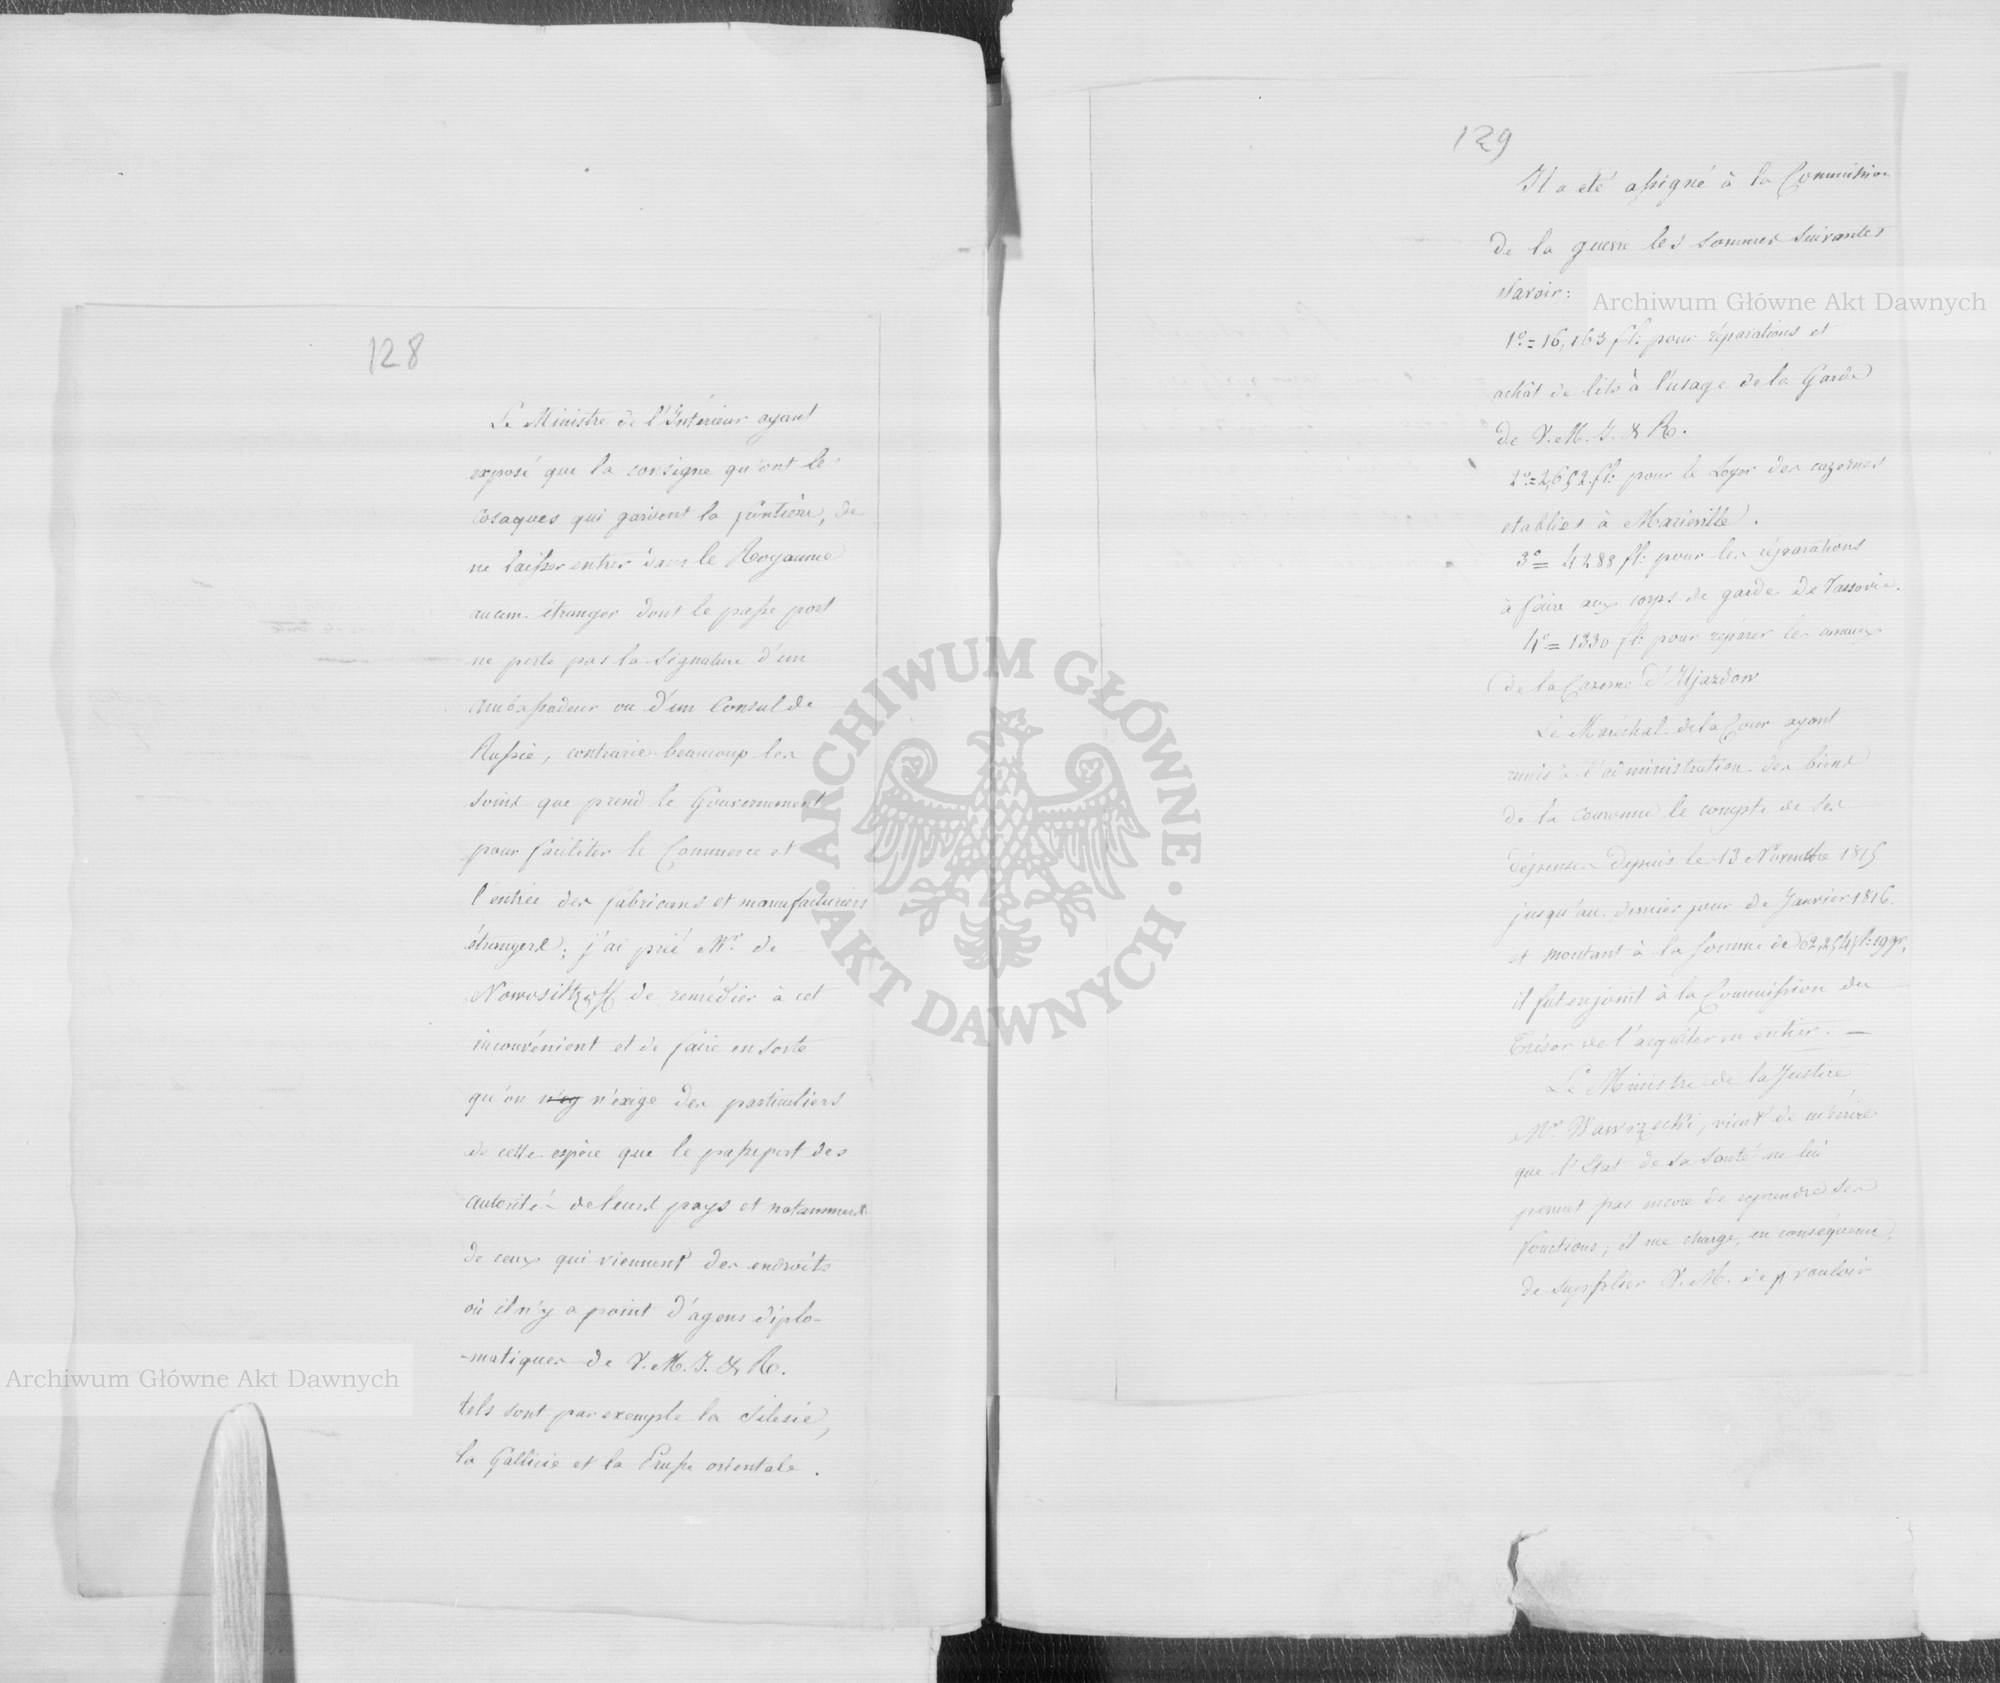 128
Le Ministre de l'Intérieur ayant
exposé que la consigne qu'ont les
cosaques qui gardent la frontière, de
ne laisser entrer dans le Royaume
aucun étranger dont le passe port
ne porte pas la signature d'un
ambassadeur ou d'un Consul de
Russie, contrarie beaucoup les
soins que prend le Gouvernement
pour faciliter le Commerce et
l'entrée des fabricans et manufacturiers
étrangers; j'ai prié Mr. de
Nowosiltzoff de remédier à cet
inconvénient et de faire en sorte
qu'on n'exige des particuliers
de cette espèce que le passeport des
autorités de leurs pays et notamment
de ceux qui viennent des endroits
où il n'y a point d'agens diplo-
-matiques de V. M. I. & R.
tels sont par exemple la Silesie,
la Gallicie et la Prusse orientale.
129
Il a été assigné à la Commission
de la guerre les sommes suivantes
savoir:
1º = 16,163 fl: pour réparations et
achât de lits à l'usage de la Garde
de V. M. I. & R.
2º = 2,652 fl: pour le Loyer des cazernes
etablies à Marieville.
3º = 4288 fl: pour les réparations
à faire aux corps de garde de Varsovie.
4º = 1330 fl: pour réparer les canaux
de la Cazerne d'Ujazdow
Le Maréchal de la Cour ayant
remis à l'administration des biens
de la couronne le compte de ses
dépenses depuis le 13 Novembre 1815
jusqu'au dernier jour de Janvier 1816.
et montant à la somme de
il fut enjoint à la Commission du
Trésor de l'acquiter en entier. —
Le Ministre de la Justice,
Mr. Wawrzecki, vient de m'écrire
que l'Etat de sa santé ne lui
permet pas encore de reprendre ses
fonctions; il me charge, en conséquence,
de supplier V. M. de vouloir
Archiwum Główne Akt Dawnych
Archiwum Główne Akt Dawnych
ARCHIWUM GŁÓWNE · AKT DAWNYCH ·